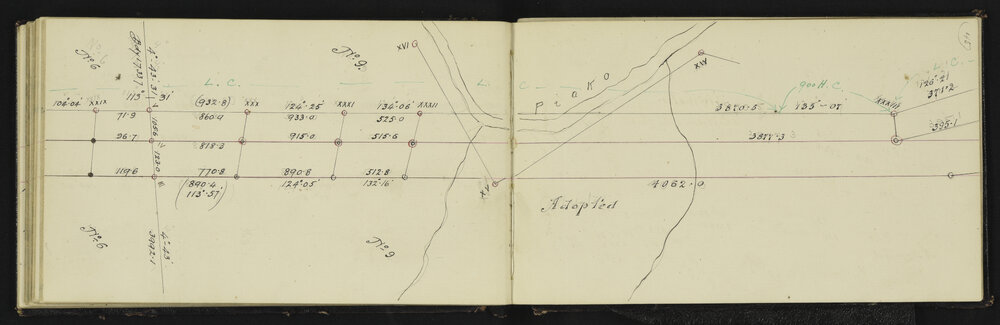 No. 6
4°·43'·31"
No. 9.
XVI
XIV
(45)
Piako
L. C.
L
C
L. C.
900 H.C.
104°04' XXIX
113° 31'
(932.8)
XXX
124° 25'
XXXI
134° 06'
XXXII
3870.5
135°-07'
XXXIII
126° 21'
371.2
71.9
860.4
933.0
525.0
395.1
96.7
818.8
915.0
515.6
3877.3
119.6
123.0
770.8
890.8
512.8
XV
4062.
(890.4
113°.57')
124° 05'
132° 16'
Adopted
No. 6
4° 43'
3992.1
No. 9